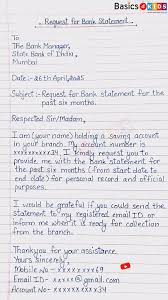 Basics4Kids
Request for Bank Statement
To
The Bank Manager,
State Bank of India,
Mumbai
Date :- 26th April, 2025
Subject :- Request for Bank statement for the
past six months.
Respected Sir/Madam,
I am (your name) holding a saving account
in your branch. My account number is
xxxxxxxxxx39. I kindly request you to
provide me with the Bank statement for the
past six months (from start date to
end date) for personal record and official
purposes.
I would be grateful if you could send the
statement to my registered email ID or
inform me when it is ready for collection
from the branch.
Thankyou for your assistance.
Yours Sincerely,
Mobile No - xxxxxxxx69
Email ID - xxxxx@gmail.com
Account No - xxxxxxxxxx39